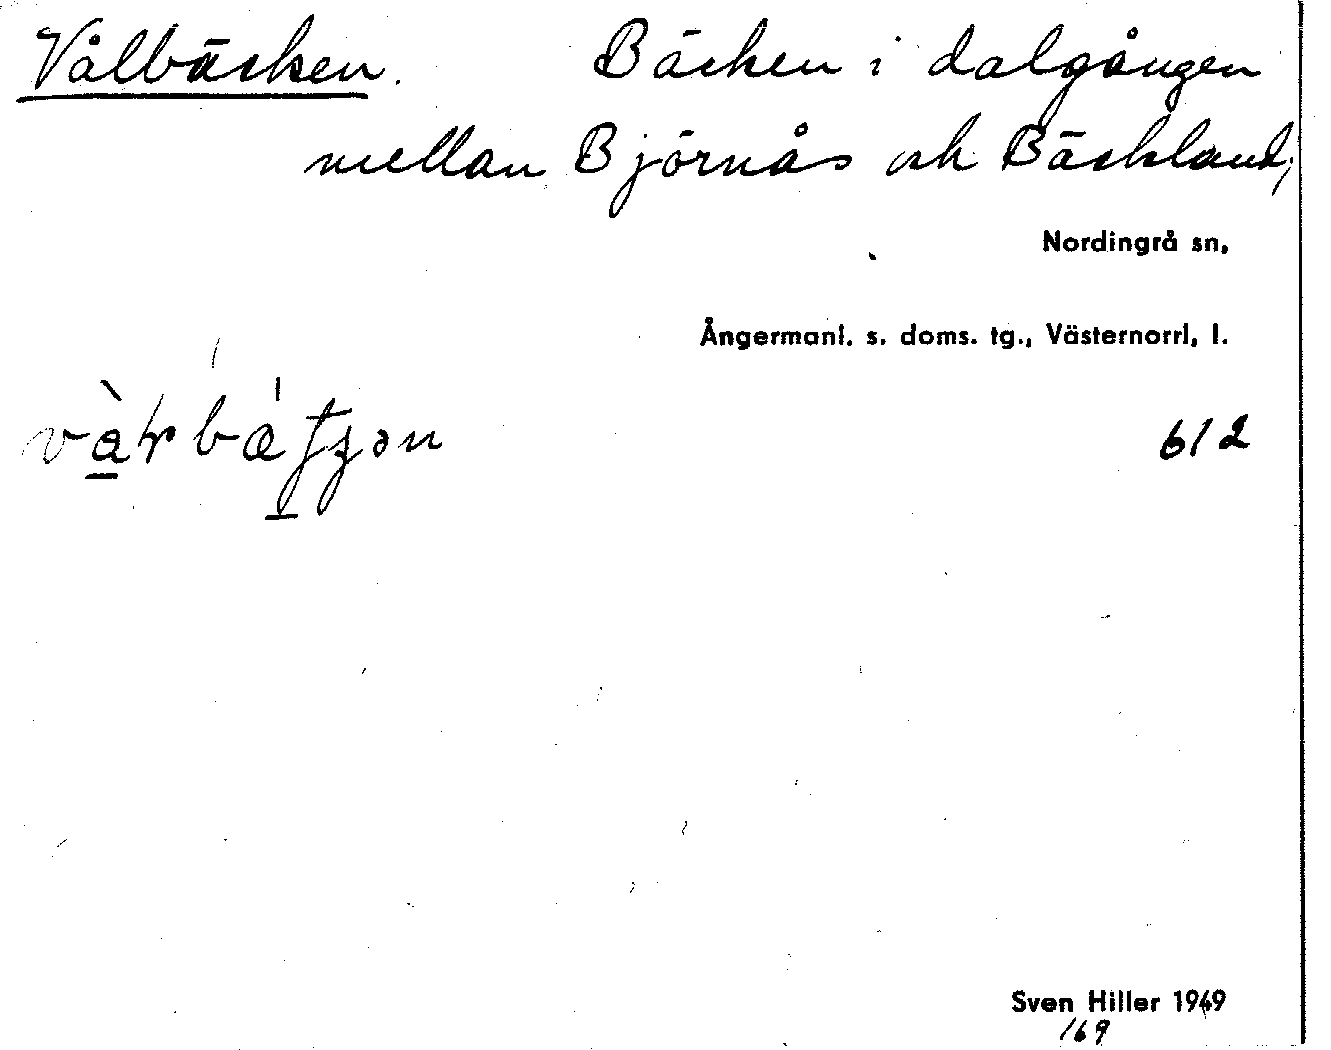 Vålbäcken. Bäcken i dalgången
mellan Björnås och Bäckland,
Nordingrå sn,
Ångermanl. s. doms. tg., Västernorrl, l.
612
Sven Hiller 1949
169